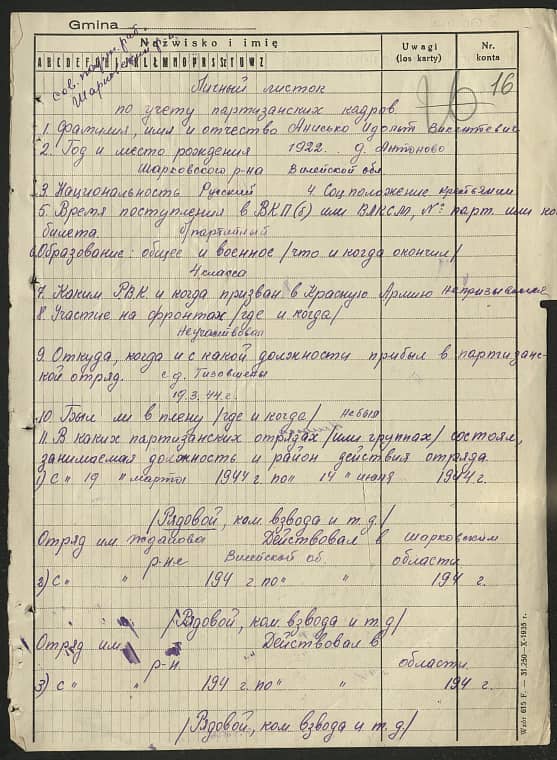 Gmina
Nazwisko i imię
Uwagi
(los karty)
Nr.
konta
сов. парт. раб.
Шарковский р.н.
16
Личный листок
по учету партизанских кадров
1. Фамилия, имя и отчество Анисько Идольт Викентьевич
2. Год и место рождения 1922. д. Антоново
Шарковского р-на Вилейской обл
3. Национальность Русский 4. Соцположение крестьянин
5. Время поступления в ВКП(б) или ВЛКСМ, № парт. или ко
билета. б/партийный
6. Образование: общее и военное /что и когда окончил/
4 класса
7. Каким РВК и когда призван в Красную Армию
8. Участие на фронтах /где и когда/
Неучаствовал
9. Откуда, когда и с какой должности прибыл в партизанс-
кой отряд. с д.
19.3.44 г.
10. Был ли в плену /где и когда/ небыл
11. В каких партизанских отрядах /или группах/ состоял,
занимаемая должность и район действия отряда
1) с " 19 " марта 1944 г. по " 14 " июня 1944 г.
/Рядовой, ком. взвода и т.д/
Отряд им. Жданова Действовал в Шарковским
р-не Вилейской об. области
2) с " " 194 г. по " " 194 г.
/Рядовой, ком взвода и т.д/
Отряд им. Действовал в
р-н. области.
3) с " " 194 г. по " " 194 г.
/Рядовой, ком. взвода и т.д/
Wzór 615 F. — 31.250—X-1935 r.